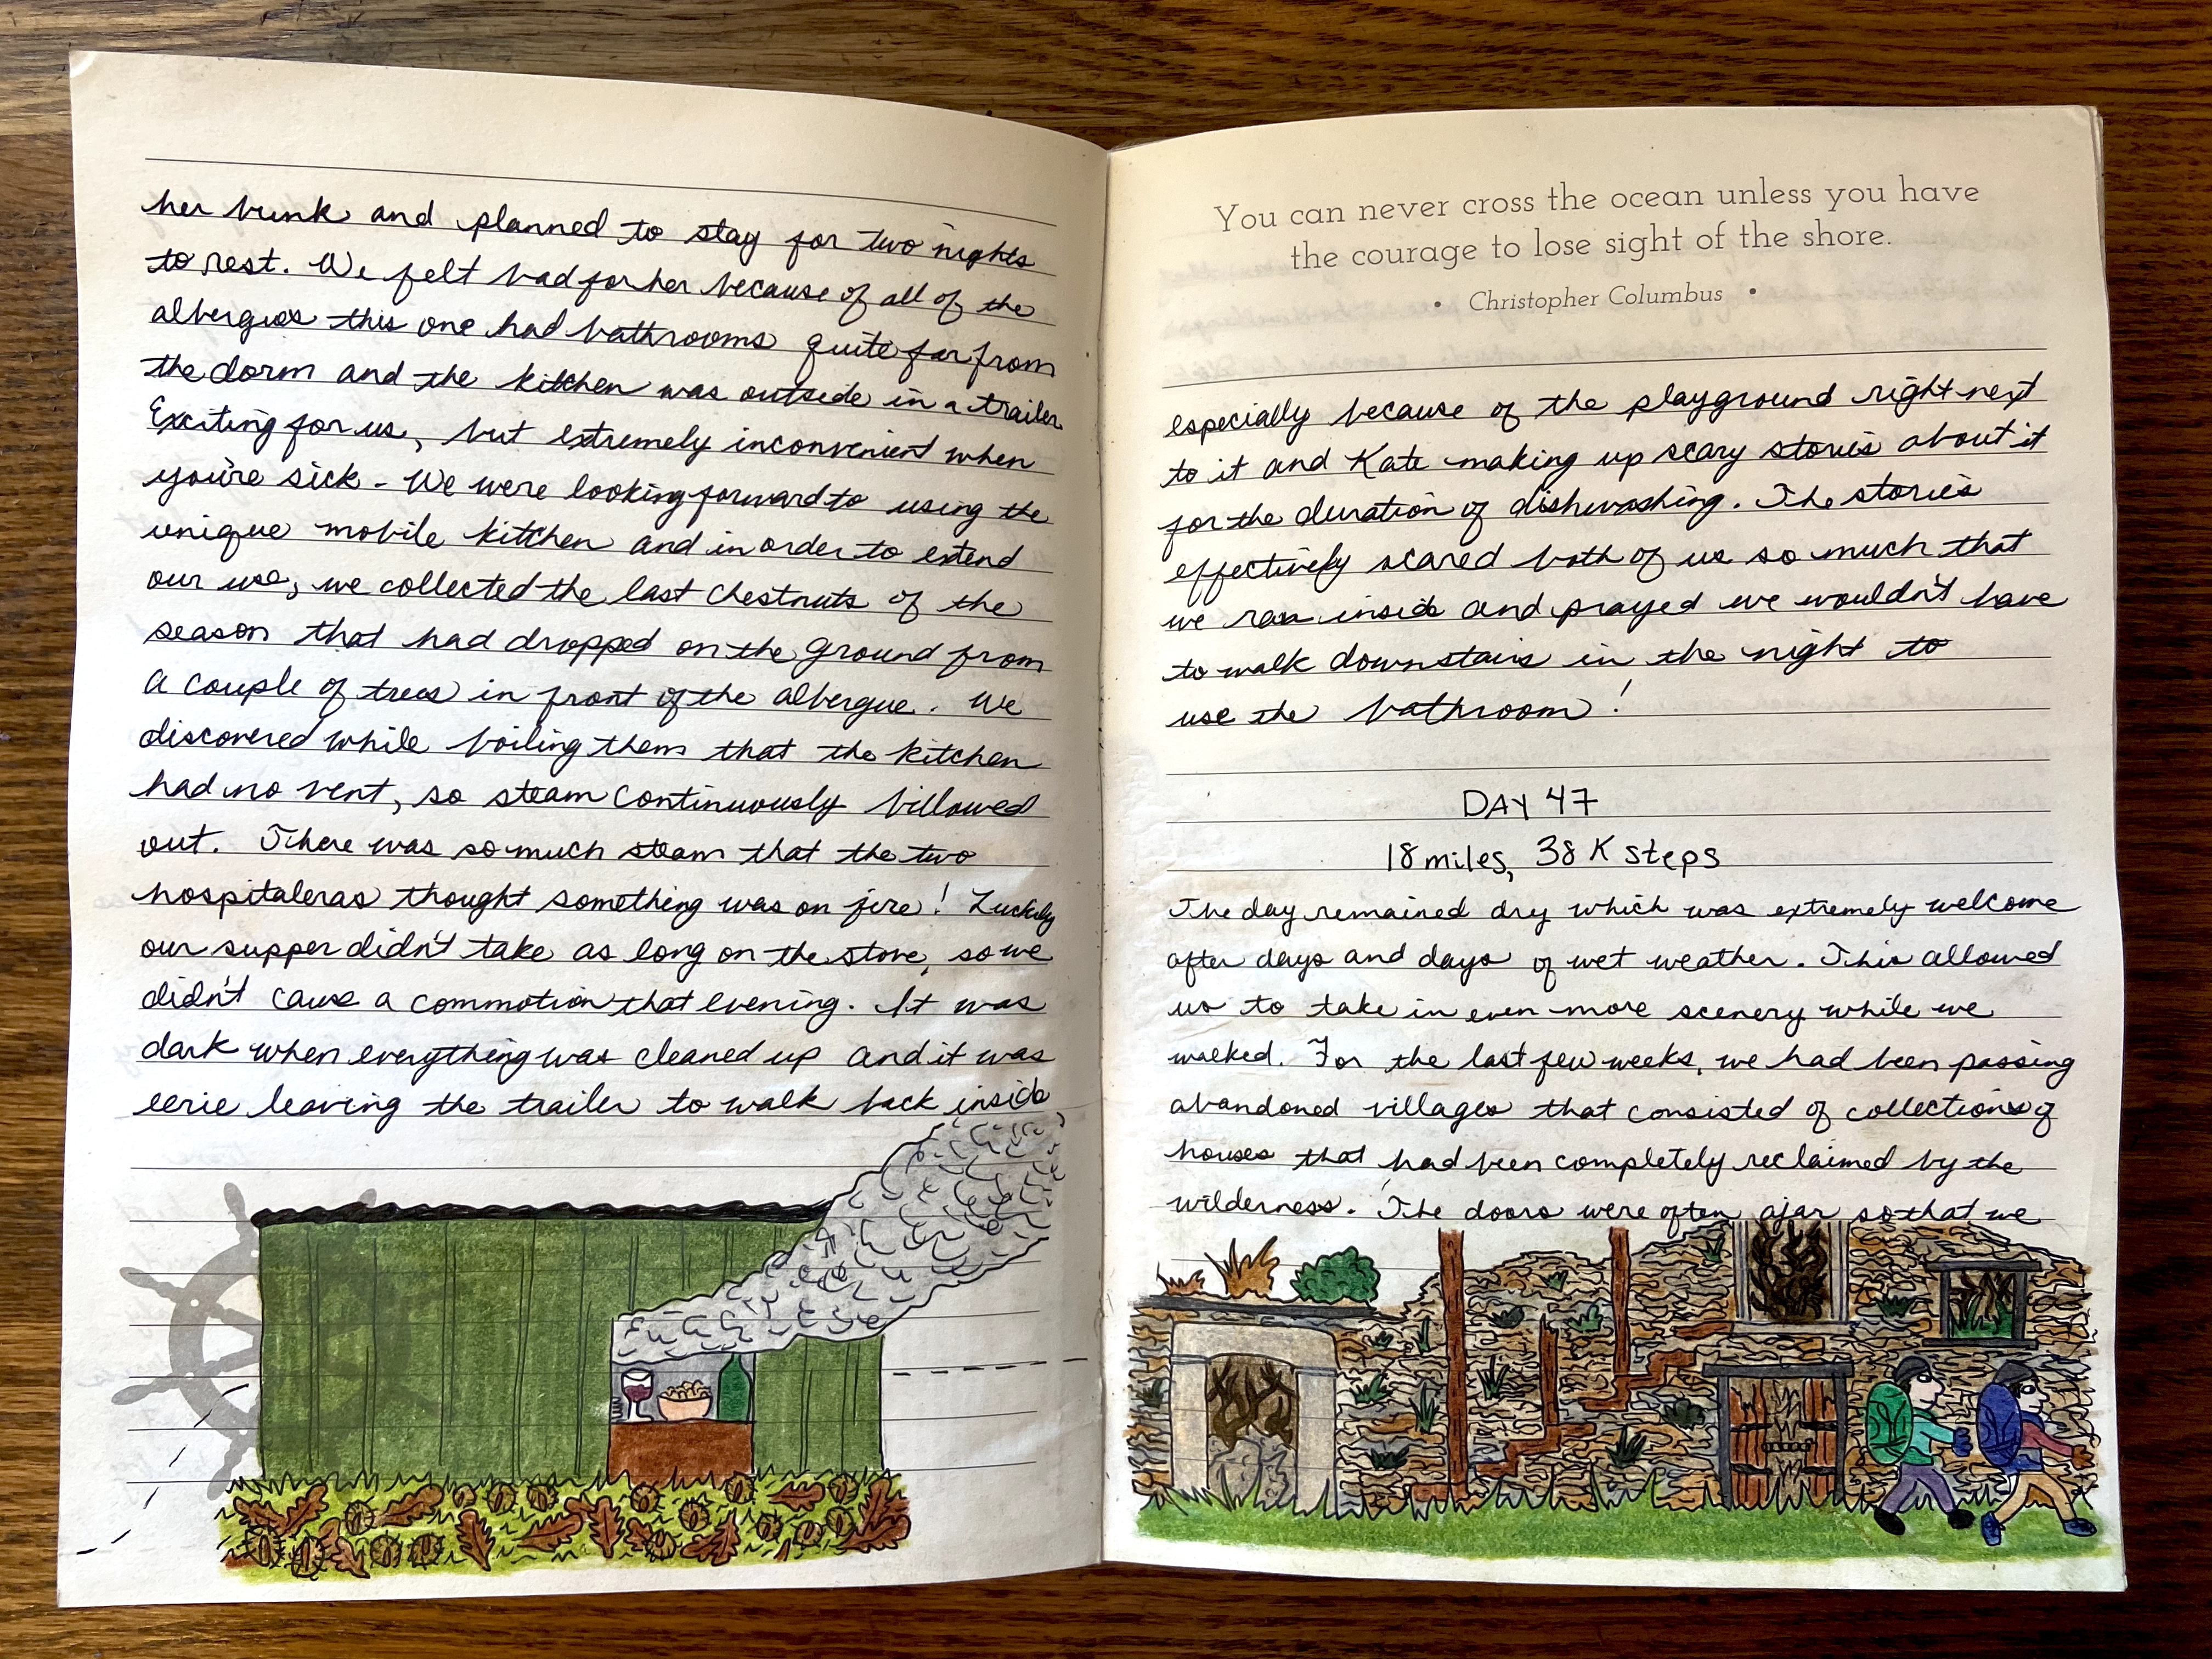 her bunk and planned to stay for two nights
to rest. We felt bad for her because of all of the
albergues this one had bathrooms quite far from
the dorm and the kitchen was outside in a trailer.
Exciting for us, but extremely inconvenient when
you're sick. We were looking forward to using the
unique mobile kitchen and in order to extend
our use, we collected the last chestnuts of the
season that had dropped on the ground from
a couple of trees in front of the albergue. We
discovered while boiling them that the kitchen
had no vent, so steam continuously billowed
out. There was so much steam that the two
hospitaleras thought something was on fire! Luckily
our supper didn't take as long on the stove, so we
didn't cause a commotion that evening. It was
dark when everything was cleaned up and it was
eerie leaving the trailer to walk back inside
You can never cross the ocean unless you have
the courage to lose sight of the shore.
• Christopher Columbus •
especially because of the playground right next
to it and Kate making up scary stories about it
for the duration of dishwashing. The stories
effectively scared both of us so much that
we ran inside and prayed we wouldn't have
to walk downstairs in the night to
use the bathroom!
DAY 47
18 miles, 38K steps
The day remained dry which was extremely welcome
after days and days of wet weather. This allowed
us to take in even more scenery while we
walked. For the last few weeks, we had been passing
abandoned villages that consisted of collections of
houses that had been completely reclaimed by the
wilderness. The doors were often ajar so that we